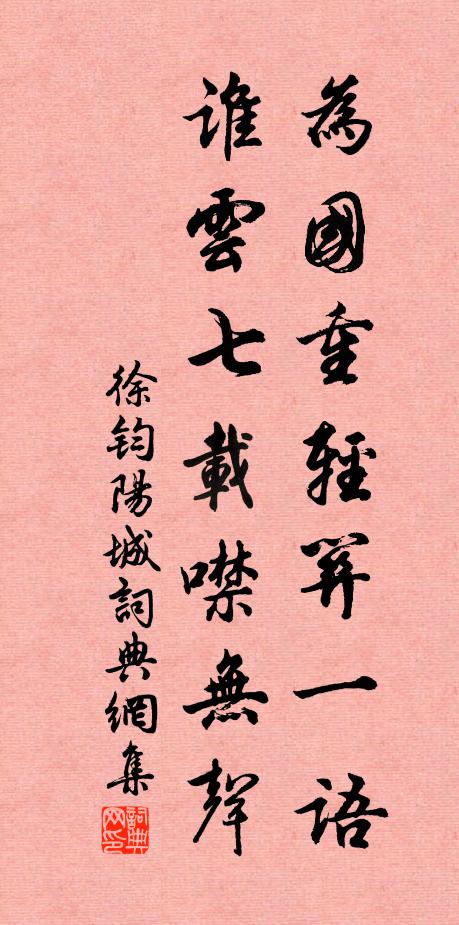 為國重輕關一語
誰雲七載噤無聲
徐鈞陽城詞典網集
詞典网印